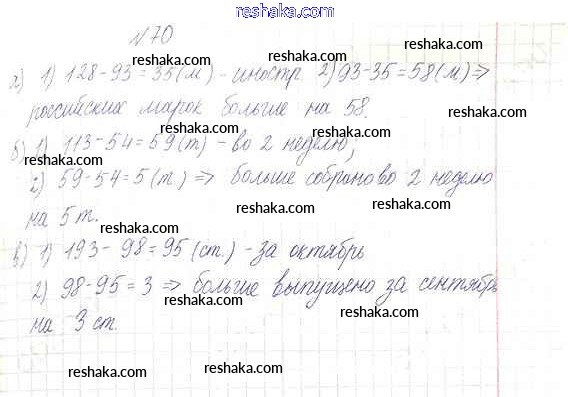 www.reshaka.com
№70
а) 1) 128-93=35(м) - иностр. 2) 93-35=58(м) =>
российских марок больше на 58.
б) 1) 113-54=59(т) - во 2 неделю;
2) 59-54=5(т) => больше собрано во 2 неделю
на 5 т.
в) 1) 193-98=95(ст.) - за октябрь
2) 98-95=3 => больше выпущено за сентябрь
на 3 ст.
reshaka.com
reshaka.com
reshaka.com
reshaka.com
reshaka.com
reshaka.com
reshaka.com
reshaka.com
reshaka.com
reshaka.com
reshaka.com
reshaka.com
reshaka.com